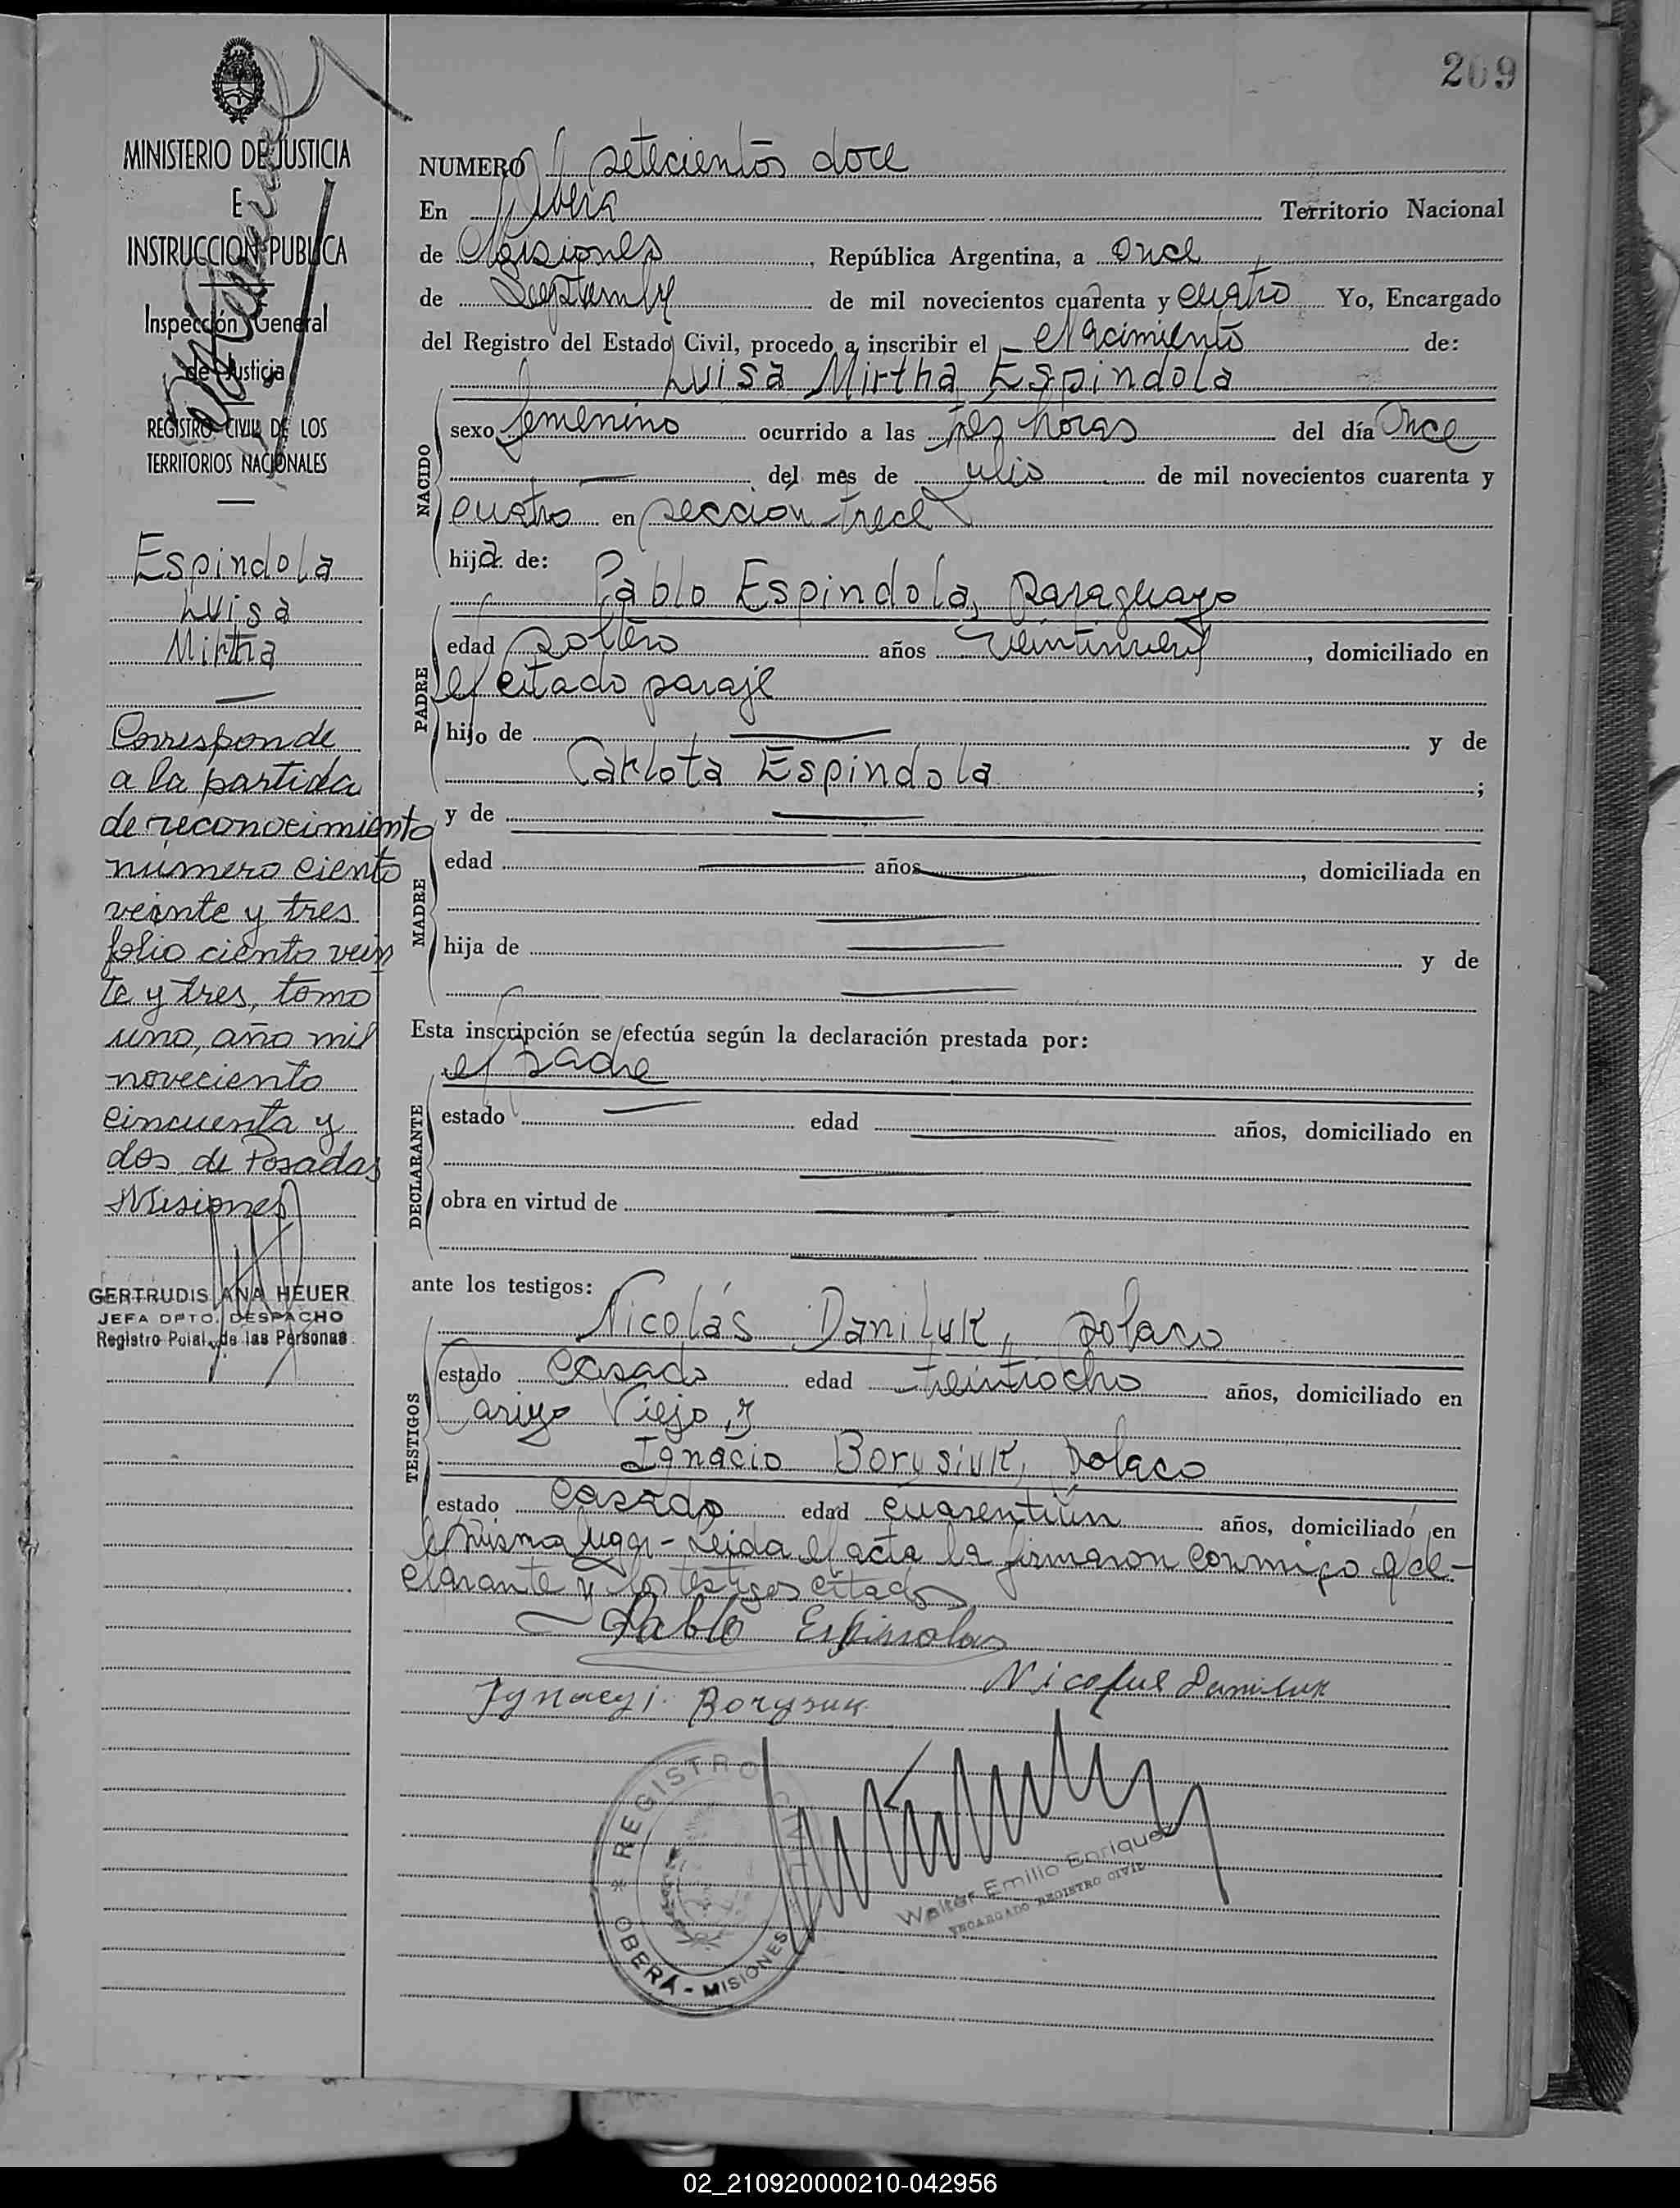 209
MINISTERIO DE JUSTICIA
E
INSTRUCCION PUBLICA
Inspección General
de Justicia
REGISTRO CIVIL DE LOS
TERRITORIOS NACIONALES
Espindola
Luisa
Mirtha
Corresponde
a la partida
de reconocimiento
número ciento
veinte y tres
folio ciento vein
te y tres, tomo
uno, año mil
noveciento
cincuenta y
dos de Posadas
Misiones
GERTRUDIS ANA HEUER
JEFA DPTO. DESPACHO
Registro Pcial. de las Personas
NUMERO setecientos doce
En Oberá Territorio Nacional
de Misiones, República Argentina, a once
de Septiembre de mil novecientos cuarenta y cuatro Yo, Encargado
del Registro del Estado Civil, procedo a inscribir el nacimiento de:
Luisa Mirtha Espindola
NACIDO
sexo femenino ocurrido a las tres horas del día once
del mes de Julio de mil novecientos cuarenta y
cuatro en sección trece
hija de:
Pablo Espindola, paraguayo
PADRE
edad soltero años veintinueve, domiciliado en
el citado paraje
hijo de y de
Carlota Espindola ;
MADRE
y de
edad años, domiciliada en
hija de y de
Esta inscripción se efectúa según la declaración prestada por:
el padre
DECLARANTE
estado edad años, domiciliado en
obra en virtud de
ante los testigos:
Nicolás Daniluk, polaco
TESTIGOS
estado casado edad treintiocho años, domiciliado en
Viejo, y
Ignacio Borusiuk, polaco
estado casado edad cuarentiún años, domiciliado en
mismo lugar - Leida el acta la firmaron conmigo el de-
clarante y los testigos citados
Pablo Espinsolas
Nicolus Daniluk
Ignacyi Borysuk
REGISTRO CIVIL
OBERÁ - MISIONES
Walter Emilio Enriquez
ENCARGADO REGISTRO CIVIL
02_210920000210-042956